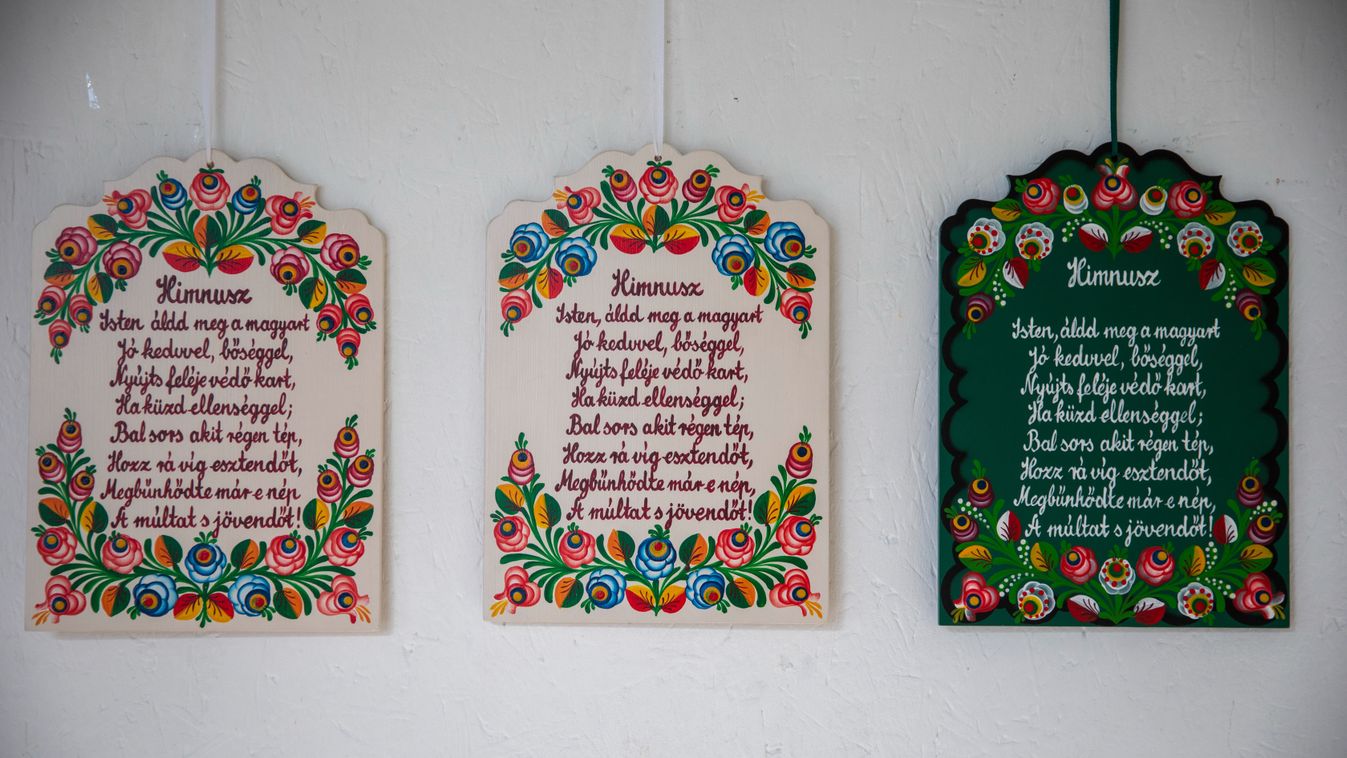 Himnusz
Isten áldd meg a magyart
Jó kedvvel, bőséggel,
Nyújts feléje védő kart,
Ha küzd ellenséggel;
Bal sors akit régen tép,
Hozz rá víg esztendőt,
Megbűnhődte már e nép
A múltat s jövendőt!
Himnusz
Isten, áldd meg a magyart
Jó kedvvel, bőséggel,
Nyújts feléje védő kart,
Ha küzd ellenséggel;
Bal sors akit régen tép,
Hozz rá víg esztendőt,
Megbűnhődte már e nép,
A múltat s jövendőt!
Himnusz
Isten, áldd meg a magyart
Jó kedvvel, bőséggel,
Nyújts feléje védő kart,
Ha küzd ellenséggel;
Bal sors akit régen tép,
Hozz rá víg esztendőt,
Megbűnhődte már e nép,
A múltat s jövendőt!